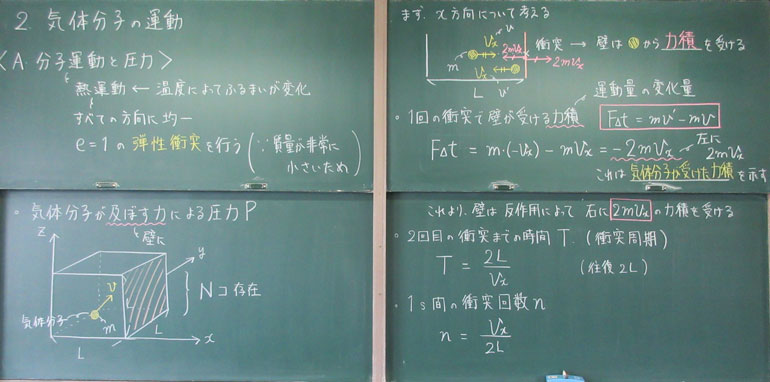 2. 気体分子の運動
〈A. 分子運動と圧力〉
熱運動 ← 温度によってふるまいが変化
すべての方向に均一
e=1の弾性衝突を行う (∵質量が非常に小さいため)
。気体分子が及ぼす力による圧力P
壁に
z
y
v
Nコ存在
気体分子
m
L
L
L
x
まず、x方向について考える
v
Vx
2mVx
衝突 → 壁は から力積を受ける
m
2mVx
Vx
L
v'
運動量の変化量
。1回の衝突で壁が受ける力積 FΔt = mv' - mv
FΔt = m・(-Vx) - mVx = -2mVx 左に2mVx
これは気体分子が受けた力積を示す
これより、壁は反作用によって右に2mVxの力積を受ける
。2回目の衝突までの時間T. (衝突周期)
T = 2L/Vx (往復2L)
。1s間の衝突回数n
n = Vx/2L